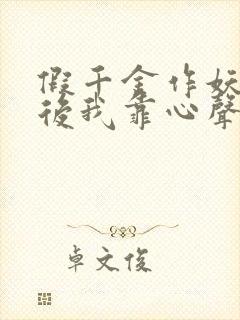 假千金作妖
後我靠心聲
卓文俊